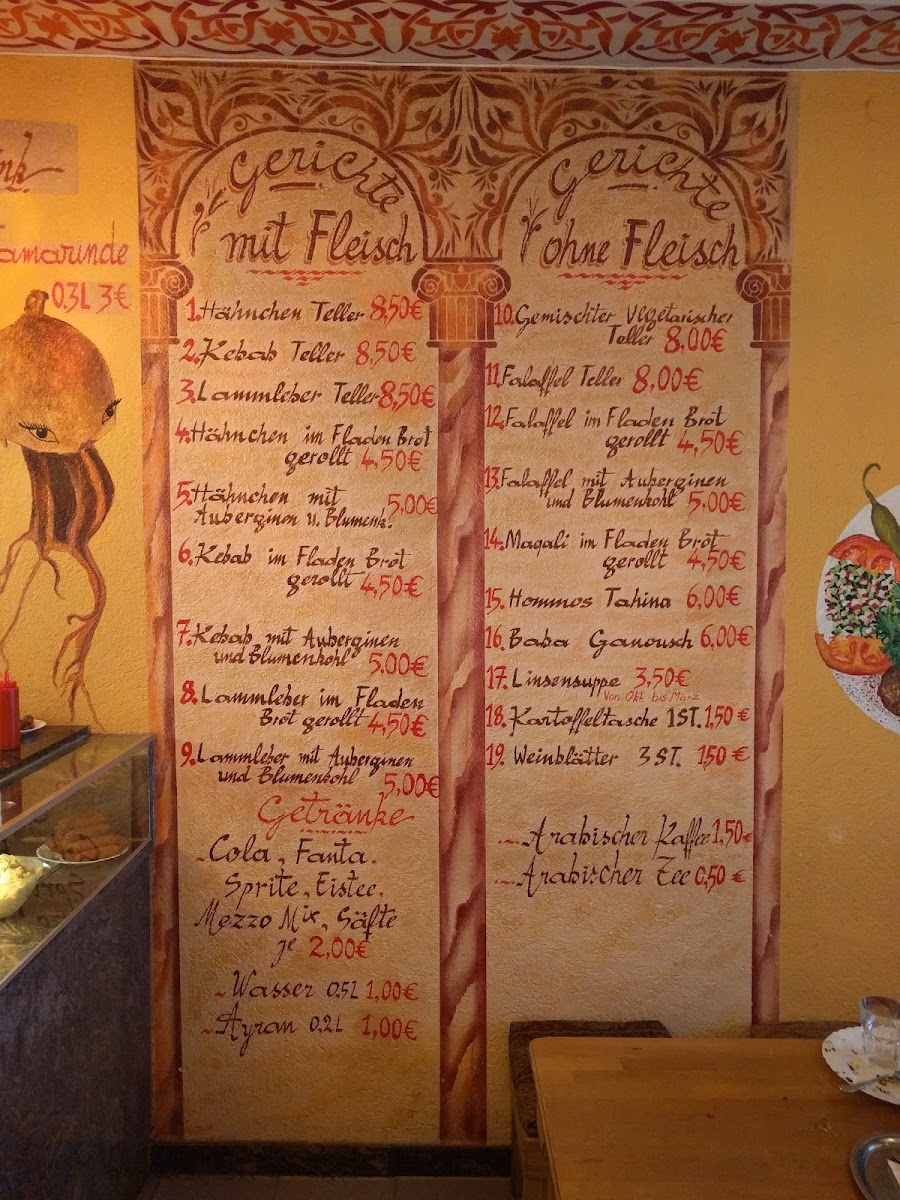 Tamarinde
0,3L 3€
Gerichte
mit Fleisch
1. Hähnchen Teller 8,50€
2. Kebab Teller 8,50€
3. Lammleber Teller 8,50€
4. Hähnchen im Fladen Brot
gerollt 4,50€
5. Hähnchen mit 5,00€
Auberginen u. Blumenk.
6. Kebab im Fladen Brot
gerollt 4,50€
7. Kebab mit Auberginen
und Blumenkohl 5,00€
8. Lammleber im Fladen
Brot gerollt 4,50€
9. Lammleber mit Auberginen
und Blumenkohl 5,00€
Getränke
Cola, Fanta.
Sprite, Eistee,
Mezzo Mix, Säfte
je 2,00€
Wasser 0,5L 1,00€
Ayran 0,2L 1,00€
Gerichte
ohne Fleisch
10. Gemischter Vegetarischer
Teller 8,00€
11. Falaffel Teller 8,00€
12. Falaffel im Fladen Brot
gerollt 4,50€
13. Falaffel mit Auberginen
und Blumenkohl 5,00€
14. Magali im Fladen Brot
gerollt 4,50€
15. Hommos Tahina 6,00€
16. Baba Ganousch 6,00€
17. Linsensuppe 3,50€
Von Okt bis März
18. Kartoffeltasche 1ST. 1,50€
19. Weinblätter 3 ST. 1,50€
Arabischer Kaffee 1,50€
Arabischer Tee 0,50€